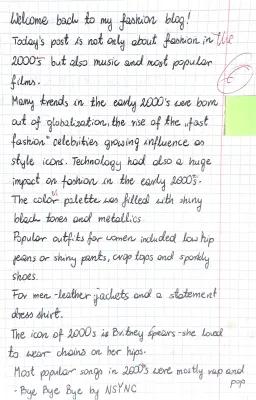 Welcome back to my fashion blog!
Today's post is not only about fashion in the
2000's but also music and most popular
films.
Many trends in the early 2000's were born
out of globalisation, the rise of the „fast
fashion" celebrities growing influence as
style icons. Technology had also a huge
impact on fashion in the early 2000's.
The color palette was filled with shiny
black tones and metallics.
Popular outfits for women included low hip
jeans or shiny pants, crop tops and sparkly
shoes.
For men - leather jackets and a statement
dress shirt.
The icon of 2000s is Britney Spears - she loved
to wear chains on her hips.
Most popular songs in 2000's were mostly rap and
pop
- Bye Bye Bye by NSYNC